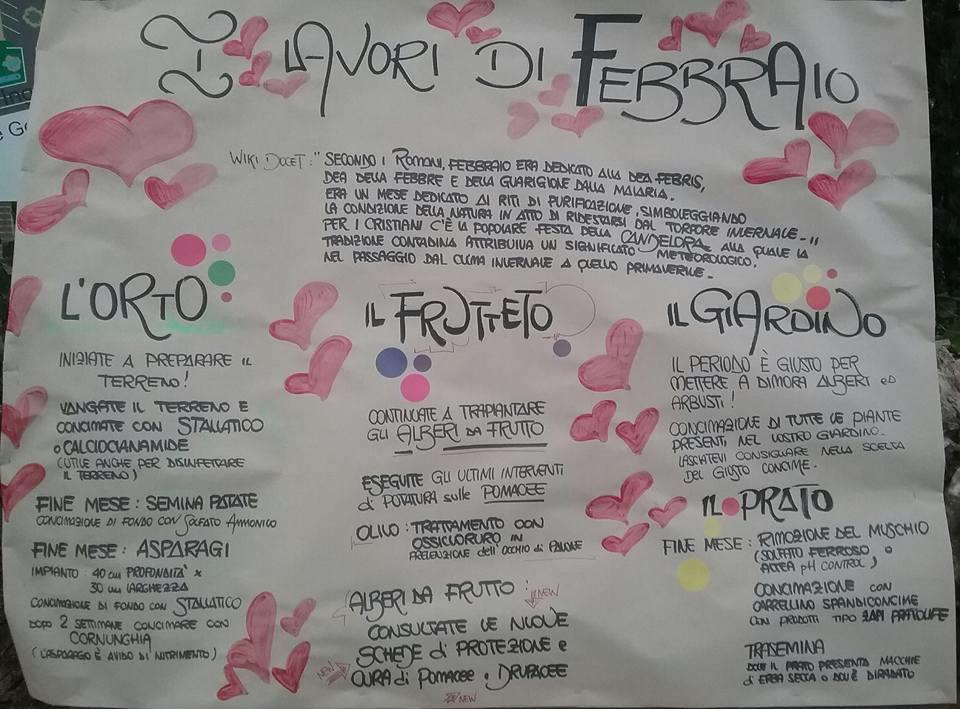 I LAVORI DI FEBBRAIO
WIKI DOCET: "SECONDO I ROMANI, FEBBRAIO ERA DEDICATO ALLA DEA FEBRIS,
DEA DELLA FEBBRE E DELLA GUARIGIONE DALLA MALARIA.
ERA UN MESE DEDICATO AI RITI DI PURIFICAZIONE, SIMBOLEGGIANDO
LA CONDIZIONE DELLA NATURA IN ATTO DI RIDESTARSI DAL TORPORE INVERNALE-"
PER I CRISTIANI C'È LA POPOLARE FESTA DELLA CANDELORA ALLA QUALE LA
TRADIZIONE CONTADINA ATTRIBUIVA UN SIGNIFICATO METEOROLOGICO.
NEL PASSAGGIO DAL CLIMA INVERNALE A QUELLO PRIMAVERILE.
L'ORTO
INIZIATE A PREPARARE IL
TERRENO!
VANGATE IL TERRENO E
CONCIMATE CON STALLATICO
o CALCIOCIANAMIDE
(UTILE ANCHE PER DISINFETTARE
IL TERRENO)
FINE MESE: SEMINA PATATE
CONCIMAZIONE DI FONDO CON SOLFATO AMMONICO
FINE MESE: ASPARAGI
IMPIANTO 40 cm PROFONDITÀ x
30 cm LARGHEZZA
CONCIMAZIONE DI FONDO CON STALLATICO
DOPO 2 SETTIMANE CONCIMARE CON
CORNUNGHIA
(L'ASPARAGO È AVIDO DI NUTRIMENTO)
IL FRUTTETO
CONTINUATE A TRAPIANTARE
GLI ALBERI DA FRUTTO
ESEGUITE GLI ULTIMI INTERVENTI
di POTATURA sulle POMACEE
OLIVO: TRATTAMENTO CON
OSSICLORURO IN
PREVENZIONE dell'OCCHIO di PAVONE
ALBERI DA FRUTTO: NEW
CONSULTATE LE NUOVE
SCHEDE di PROTEZIONE e
NEW CURA di POMACEE e DRUPACEE
NEW
IL GIARDINO
IL PERIODO È GIUSTO PER
METTERE A DIMORA ALBERI ED
ARBUSTI!
CONCIMAZIONE DI TUTTE LE PIANTE
PRESENTI NEL VOSTRO GIARDINO.
LASCIATEVI CONSIGLIARE NELLA SCELTA
DEL GIUSTO CONCIME.
IL PRATO
FINE MESE: RIMOZIONE DEL MUSCHIO
(SOLFATO FERROSO, o
ALTEA pH CONTROL)
CONCIMAZIONE CON
CARRELLINO SPANDICONCIME
CON PRODOTTI TIPO ZAPI PRATOLIFE
TRASEMINA
DOVE IL PRATO PRESENTA MACCHIE
di ERBA SECCA o DOV'È DIRADATO